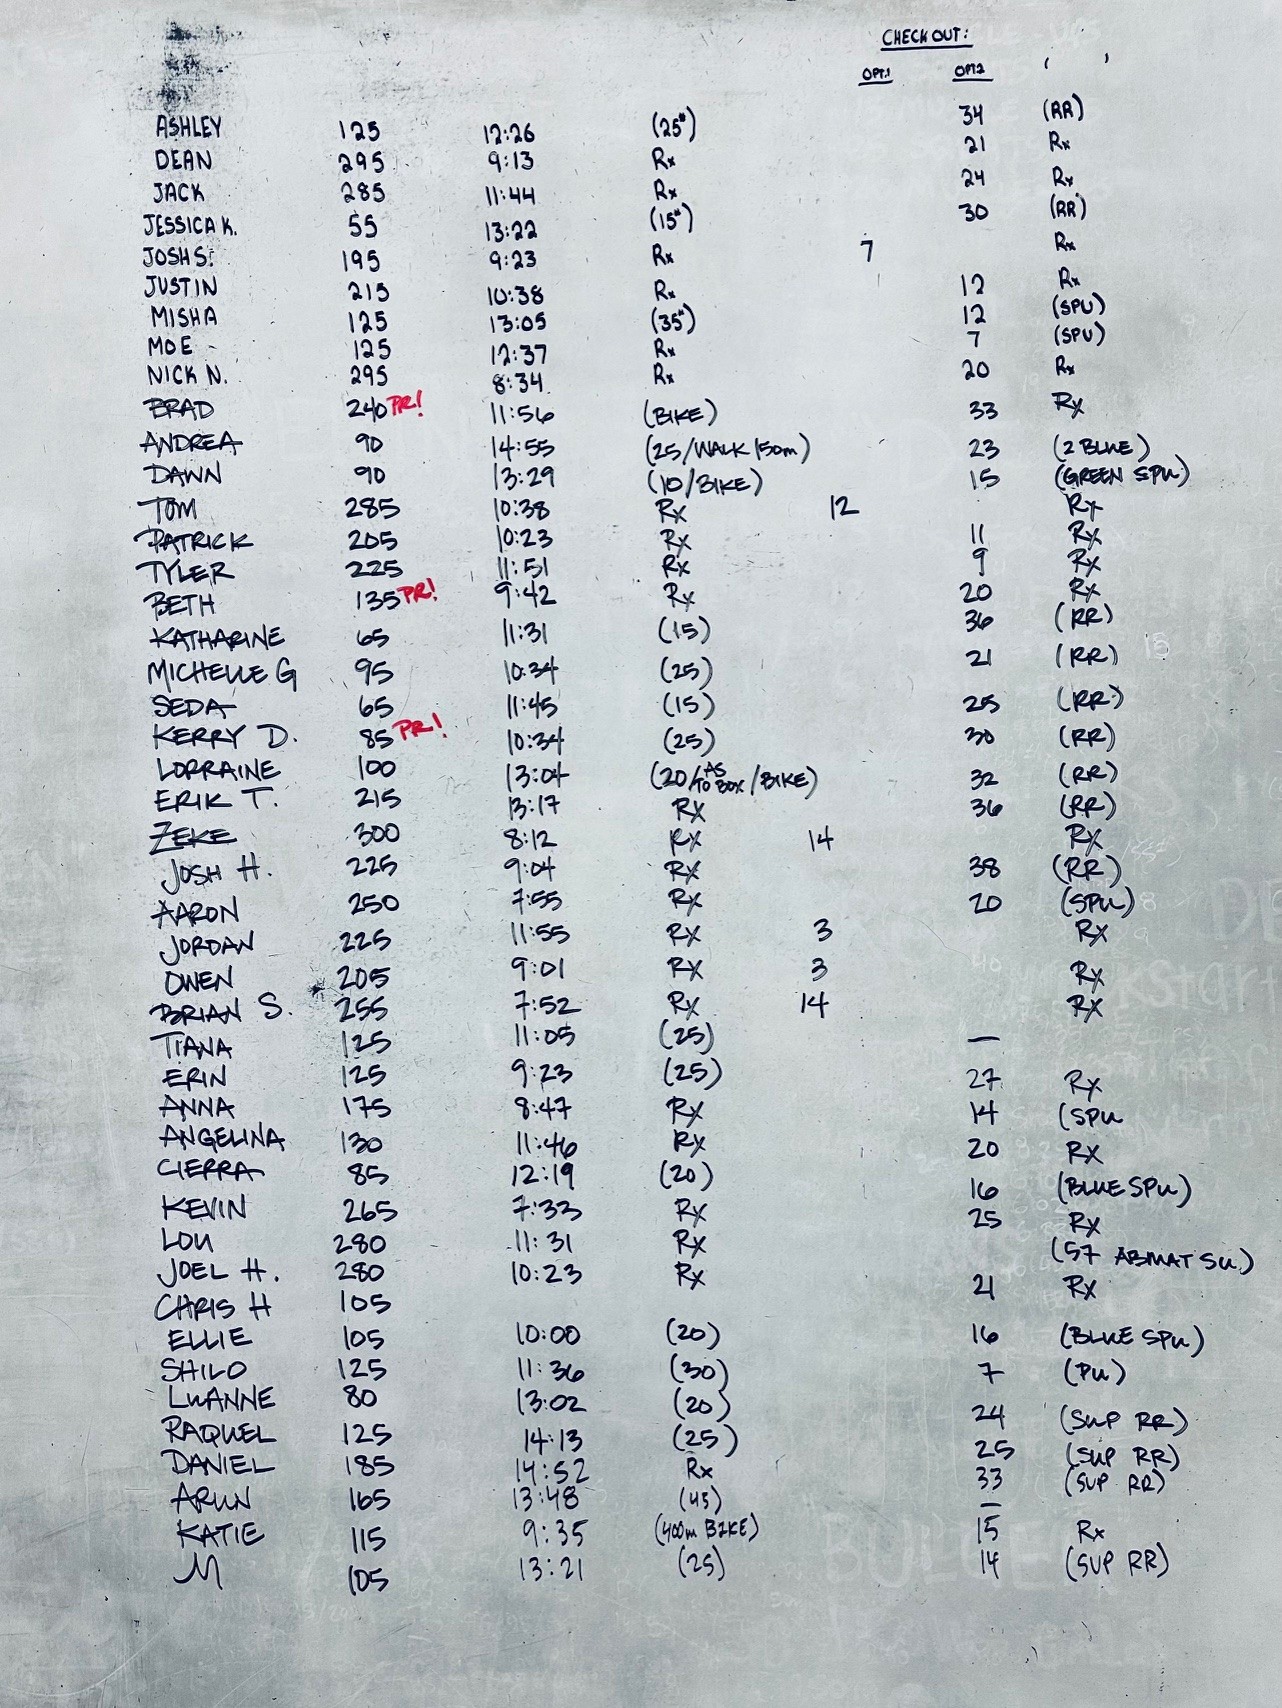 CHECK OUT:
OPT.1 OPT.2 ( )
ASHLEY 125 12:26 (25#) 34 (RR)
DEAN 295 9:13 Rx 21 Rx
JACK 285 11:44 Rx 24 Rx
JESSICA K. 55 13:22 (15#) 30 (RR)
JOSH S. 195 9:23 Rx 7 Rx
JUSTIN 215 10:38 Rx 12 Rx
MISHA 125 13:05 (35#) 12 (SPU)
MOE 125 12:37 Rx 7 (SPU)
NICK N. 295 8:34 Rx 20 Rx
BRAD 240 PR! 11:56 (BIKE) 33 Rx
ANDREA 90 14:55 (25/WALK 150m) 23 (2 BLUE)
DAWN 90 13:29 (10/BIKE) 15 (GREEN SPU)
TOM 285 10:38 Rx 12 Rx
PATRICK 205 10:23 Rx 11 Rx
TYLER 225 11:51 Rx 9 Rx
BETH 135 PR! 9:42 Rx 20 Rx
KATHARINE 65 11:31 (15) 36 (RR)
MICHELLE G 95 10:34 (25) 21 (RR)
SEDA 65 11:45 (15) 25 (RR)
KERRY D. 85 PR! 10:34 (25) 30 (RR)
LORRAINE 100 13:04 (20/AS TO BOX/BIKE) 32 (RR)
ERIK T. 215 13:17 RX 36 (RR)
ZEKE 300 8:12 RX 14 RX
JOSH H. 225 9:04 RX 38 (RR)
AARON 250 7:55 RX 20 (SPU)
JORDAN 225 11:55 RX 3 RX
OWEN 205 9:01 RX 3 RX
BRIAN S. 255 7:52 RX 14 RX
TIANA 125 11:05 (25) —
ERIN 125 9:23 (25) 27 RX
ANNA 175 8:47 RX 14 (SPU
ANGELINA 130 11:46 RX 20 RX
CIERRA 85 12:19 (20) 16 (BLUE SPU)
KEVIN 265 7:33 RX 25 RX
LOU 280 11:31 RX (57 ABMAT SU)
JOEL H. 280 10:23 RX 21 RX
CHRIS H 105
ELLIE 105 10:00 (20) 16 (BLUE SPU)
SHILO 125 11:36 (30) 7 (PU)
LUANNE 80 13:02 (20) 24 (SUP RR)
RAQUEL 125 14:13 (25) 25 (SUP RR)
DANIEL 185 14:52 Rx 33 (SUP RR)
ARUN 165 13:48 (45) —
KATIE 115 9:35 (400m BIKE) 15 Rx
M 105 13:21 (25) 14 (SUP RR)